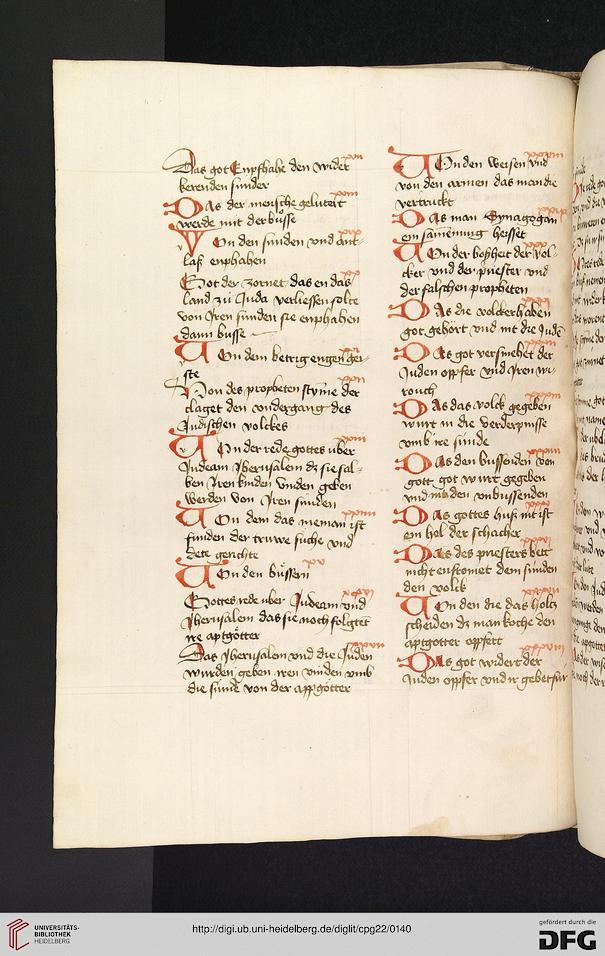 xvii
Das got Enpfhahe den wider
kerenden sunder
xviii
Das der mensche gelutert
werde mit der busse
xix
Von den sunden und ant
laß enphahen
xx
Got der zornet das en das
land zu Juda verliessen solte
von Iren sunden sie enphahen
dann busse
xxi
Von dem betrig engen gei
ste
xxii
Von des propheten stymme der
claget den undergang des
Judischen volckes
xxiii
Von der rede gottes uber
Judeam Jherusalem dz sie sal
ben Iren finden unden geben
werden von Iren sunden
xxiiii
Von dem das nieman ist
funden der truwe suche und
dete gerichte
xxv
Von den bussern
xxvi
Gottes rede uber Judeam und
Jherusalem das sie noch folgtet
ire aptgotter
xxvii
Das Jherusalem und die Juden
wurden geben iren vinden umb
die sunde von der appgotter
xxviii
Von den weisen und
von den armen das man die
vertruckt
xxix
Das man Synagogam
ein samenung heisset
xxx
Von der boßheit der vol
cker und der priester und
der falschen propheten
xxxi
Das die volcker haben
got gehört und nit die Jude
xxxii
Das got versmehet der
Juden opffer und Iren wi
rouch
xxxiii
Das das volck gegeben
wirt in die verderpnisse
umb ire sunde
xxxiiii
Das den bussenden von
gott got wirt gegeben
und nit den unbussenden
xxxv
Das gottes huß nit ist
ein hol der schacher
xxxvi
Das des priesters bett
nicht enkomet dem sunden
den volck
xxxvii
Von den die das holtz
scheiden dz man koche den
aptgotter opffert
xxxviii
Das got widert der
Juden opffer und ir gebet fur
UNIVERSITÄTS-
BIBLIOTHEK
HEIDELBERG
http://digi.ub.uni-heidelberg.de/diglit/cpg22/0140
gefördert durch die
DFG